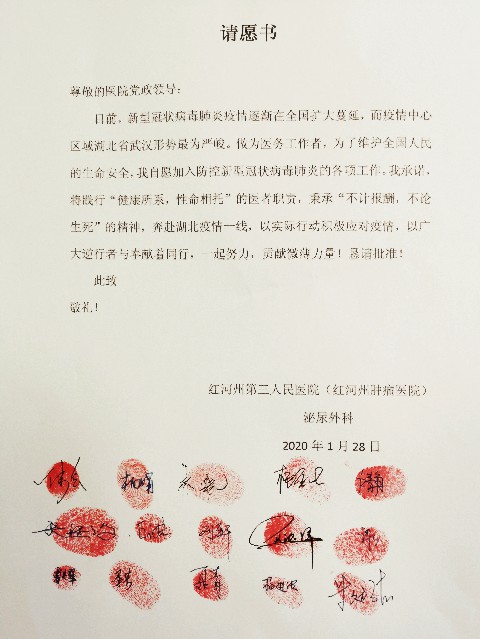 请愿书
尊敬的医院党政领导：
目前，新型冠状病毒肺炎疫情逐渐在全国扩大蔓延，而疫情中心
区域湖北省武汉形势最为严峻。做为医务工作者，为了维护全国人民
的生命安全，我自愿加入防控新型冠状病毒肺炎的各项工作，我承诺，
将践行“健康所系，性命相托”的医者职责，秉承“不计报酬，不论
生死”的精神，奔赴湖北疫情一线，以实际行动积极应对疫情，以广
大逆行者与奉献着同行，一起努力，贡献微薄力量！恳请批准！
此致
敬礼！
红河州第三人民医院（红河州肿瘤医院）
泌尿外科
2020 年 1 月 28 日